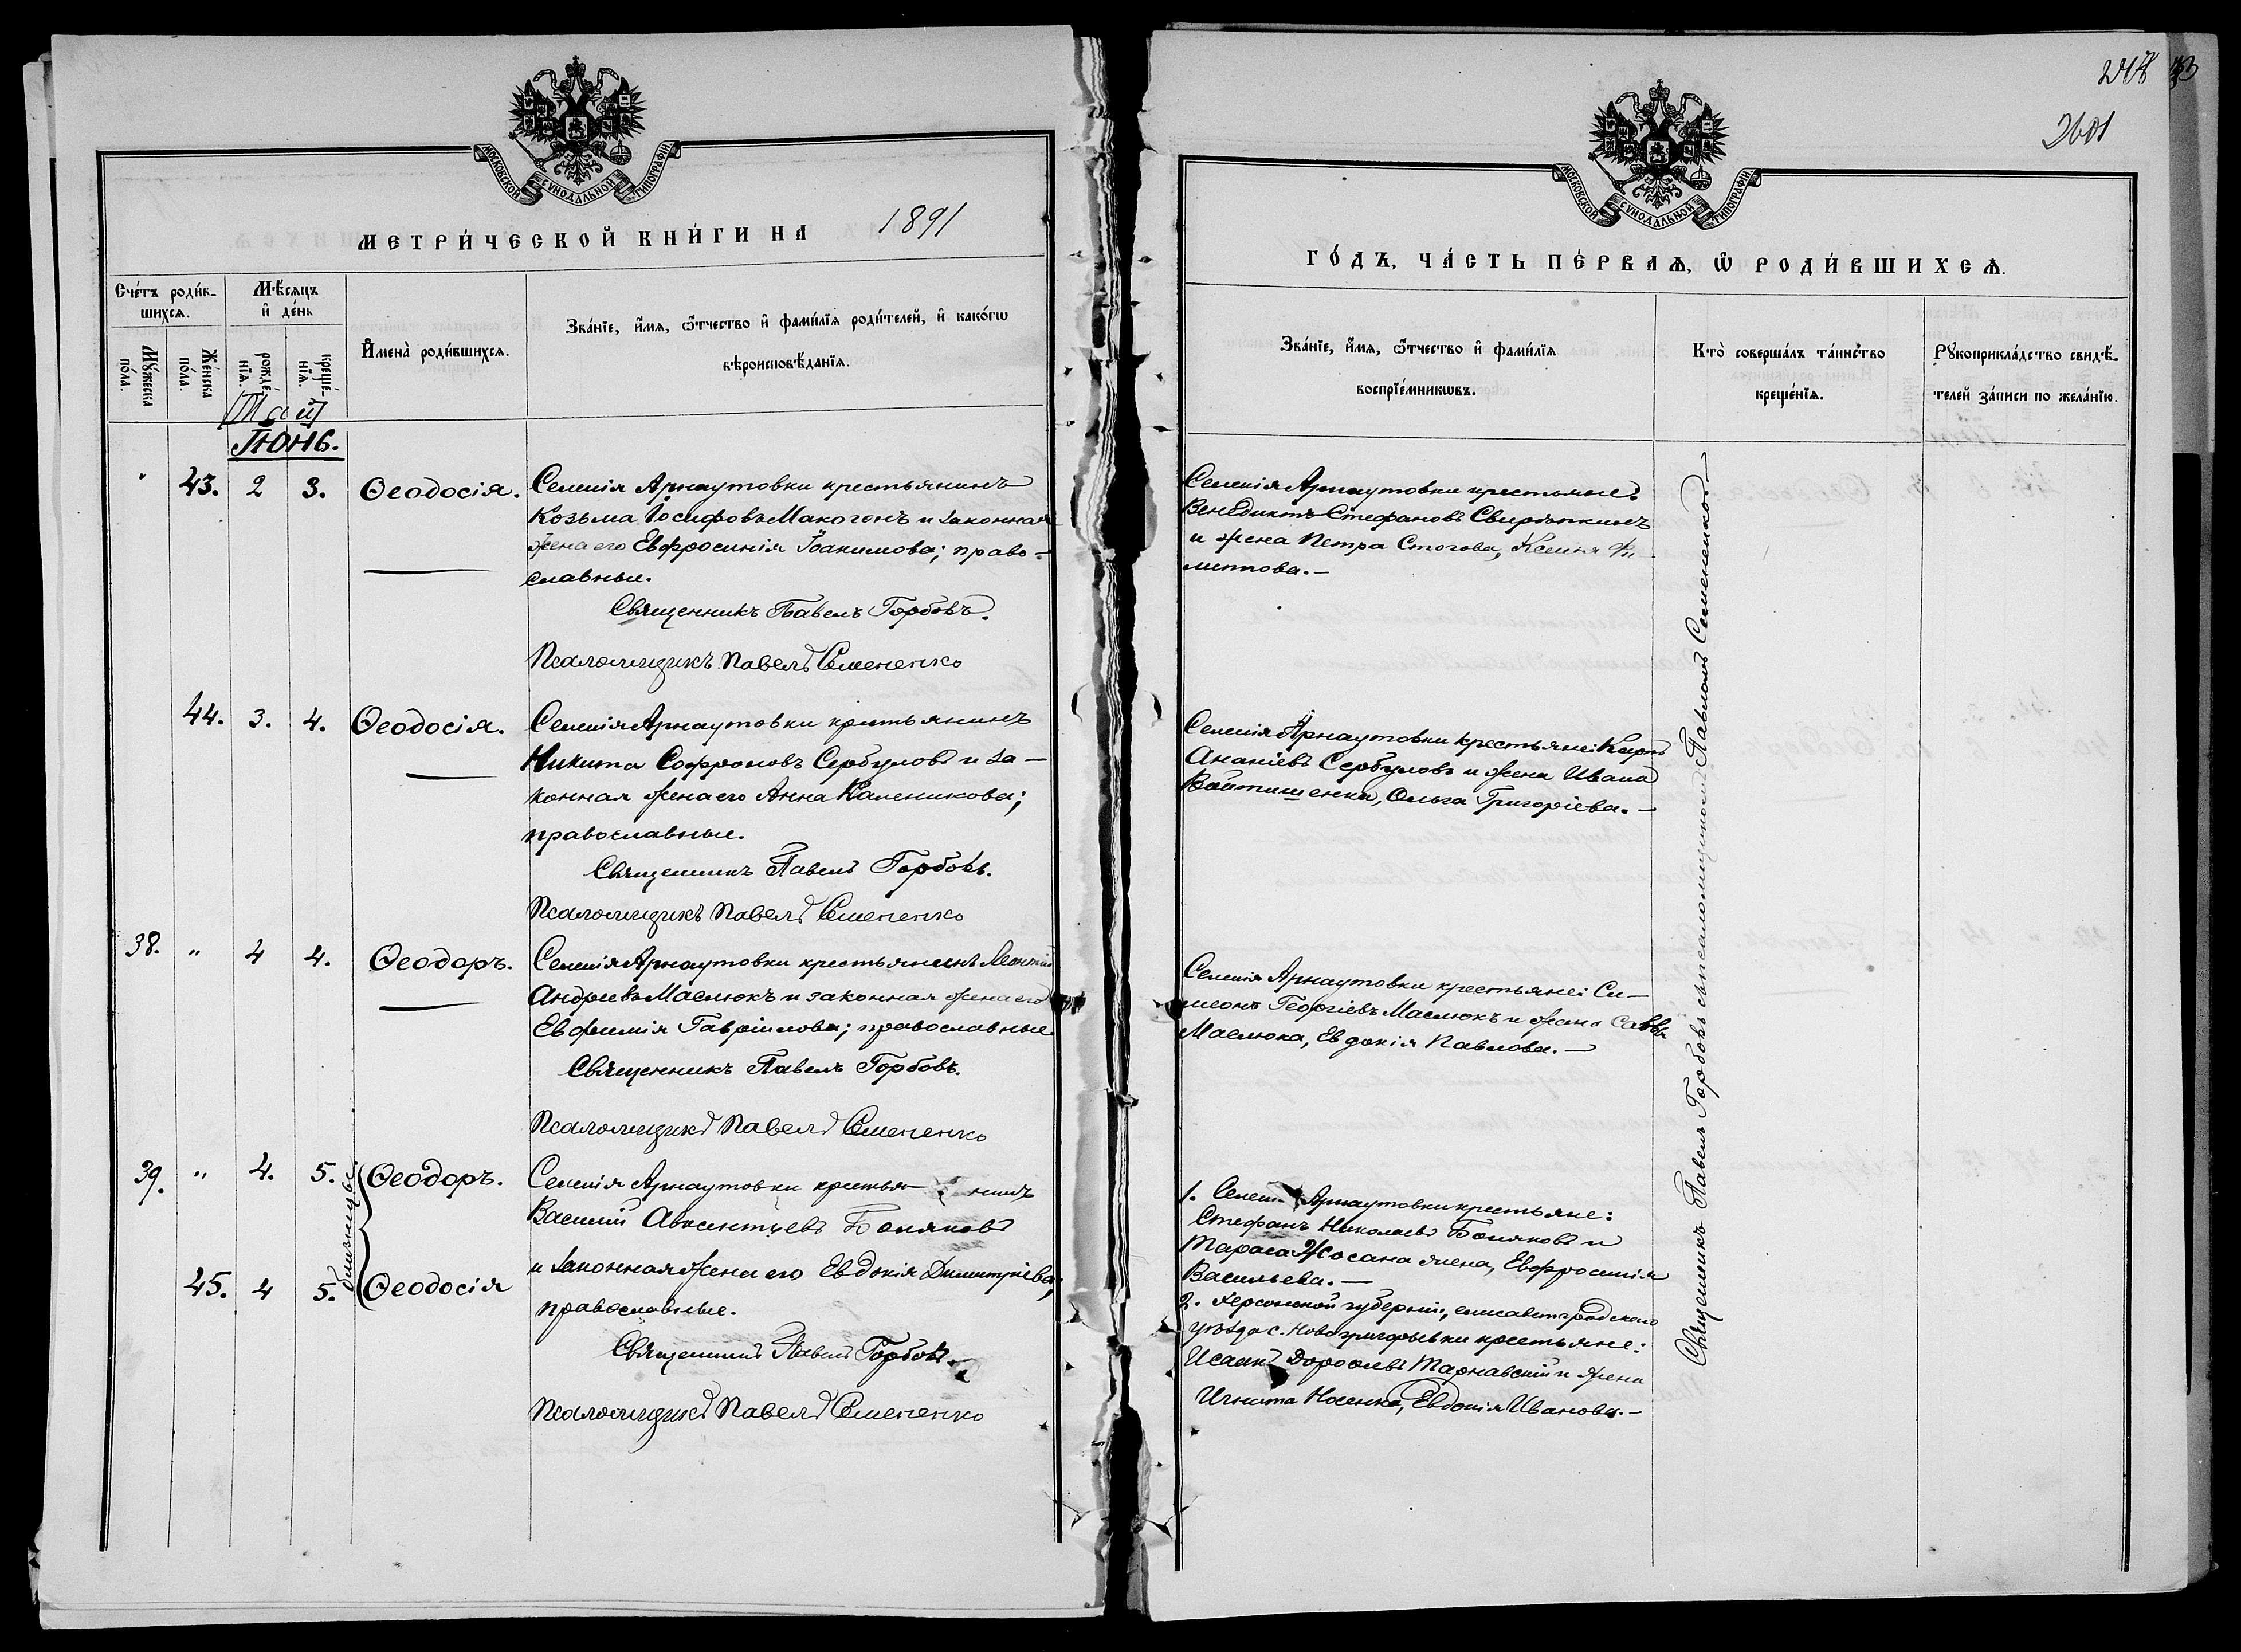 МОСКОВСКОЙ СѴНОДАЛЬНОЙ ТИПОГРАФІИ
МЕТРИ́ЧЕСКОЙ КНИ́ГИ НА 1891
Сче́тъ роди́в-
шихсѧ.
Мꙋ́жеска по́ла.
Же́нска по́ла.
Мѣ́сѧцъ
и҆ де́нь
рожде́-
нїѧ.
креще́-
нїѧ.
И҆мена̀ роди́вшихсѧ.
Зва́нїе, и҆́мѧ, ѻ҆́тчество и҆ фами́лїѧ роди́телей, и҆ како́гѡ
вѣроисповѣ́данїѧ.
[Май]
Іюнь.
" 43. 2 3. Ѳеодосія.
Селенія Арнаутовки крестьянинъ
Козьма Іосифовъ Макогонъ и законная
жена его Евфросинія Іоакимова; право-
славные.
Священникъ Павелъ Горбовъ.
Псаломщикъ Павелъ Семененко
44. 3. 4. Ѳеодосія.
Селенія Арнаутовки крестьянинъ
Никита Софроновъ Сербуловъ и за-
конная жена его Анна Каленикова;
православные.
Священникъ Павелъ Горбовъ.
Псаломщикъ Павелъ Семененко
38. " 4 4. Ѳеодоръ.
Селенія Арнаутовки крестьянинъ Леонтій
Андреевъ Маслюкъ и законная жена его
Евфимія Гавріилова; православные.
Священникъ Павелъ Горбовъ.
Псаломщикъ Павелъ Семененко
39. " 4. 5. Ѳеодоръ.
близнецы.
45. 4 5. Ѳеодосія
Селенія Арнаутовки крестьянинъ
Василій Авксентіевъ
и законная жена его Евдокія Димитріева;
православные.
Священникъ Павелъ Горбовъ.
Псаломщикъ Павелъ Семененко
2601
МОСКОВСКОЙ СѴНОДАЛЬНОЙ ТИПОГРАФІИ
ГО́ДЪ, ЧА́СТЬ ПЕ́РВАѦ, Ѡ҆ РОДИ́ВШИХСѦ.
Зва́нїе, и҆́мѧ, ѻ҆́тчество и҆ фами́лїѧ
воспрїе́мникѡвъ.
Кто̀ соверша́лъ та́инство
креще́нїѧ.
Рꙋкоприкла́дство свидѣ́-
телей за́писи по жела́нїю.
Селенія Арнаутовки крестьяне:
Венедиктъ Стефановъ
и жена Петра Стогова, Ксенія Фи-
липпова.—
Селенія Арнаутовки крестьяне: Карпъ
Ананіевъ Сербуловъ и жена Ивана
Войтишенка, Ольга Григоріева.—
Селенія Арнаутовки крестьяне: Си-
меонъ Георгіевъ Маслюкъ и жена Саввы
Маслюка, Евдокія Павлова.—
1. Селенія Арнаутовки крестьяне:
Стефанъ Николаевъ и
Тараса Жосана жена, Евфросинія
Васильева.—
2. Херсонской губерніи, елисаветградского
уѣзда с. Новогригорьевки крестьяне:
Исаакъ Дороѳеевъ Тарнавскій и жена
Игната Носенка, Евдокія Иванова.—
Священникъ Павелъ Горбовъ съ псаломщикомъ Павломъ Семененко.—